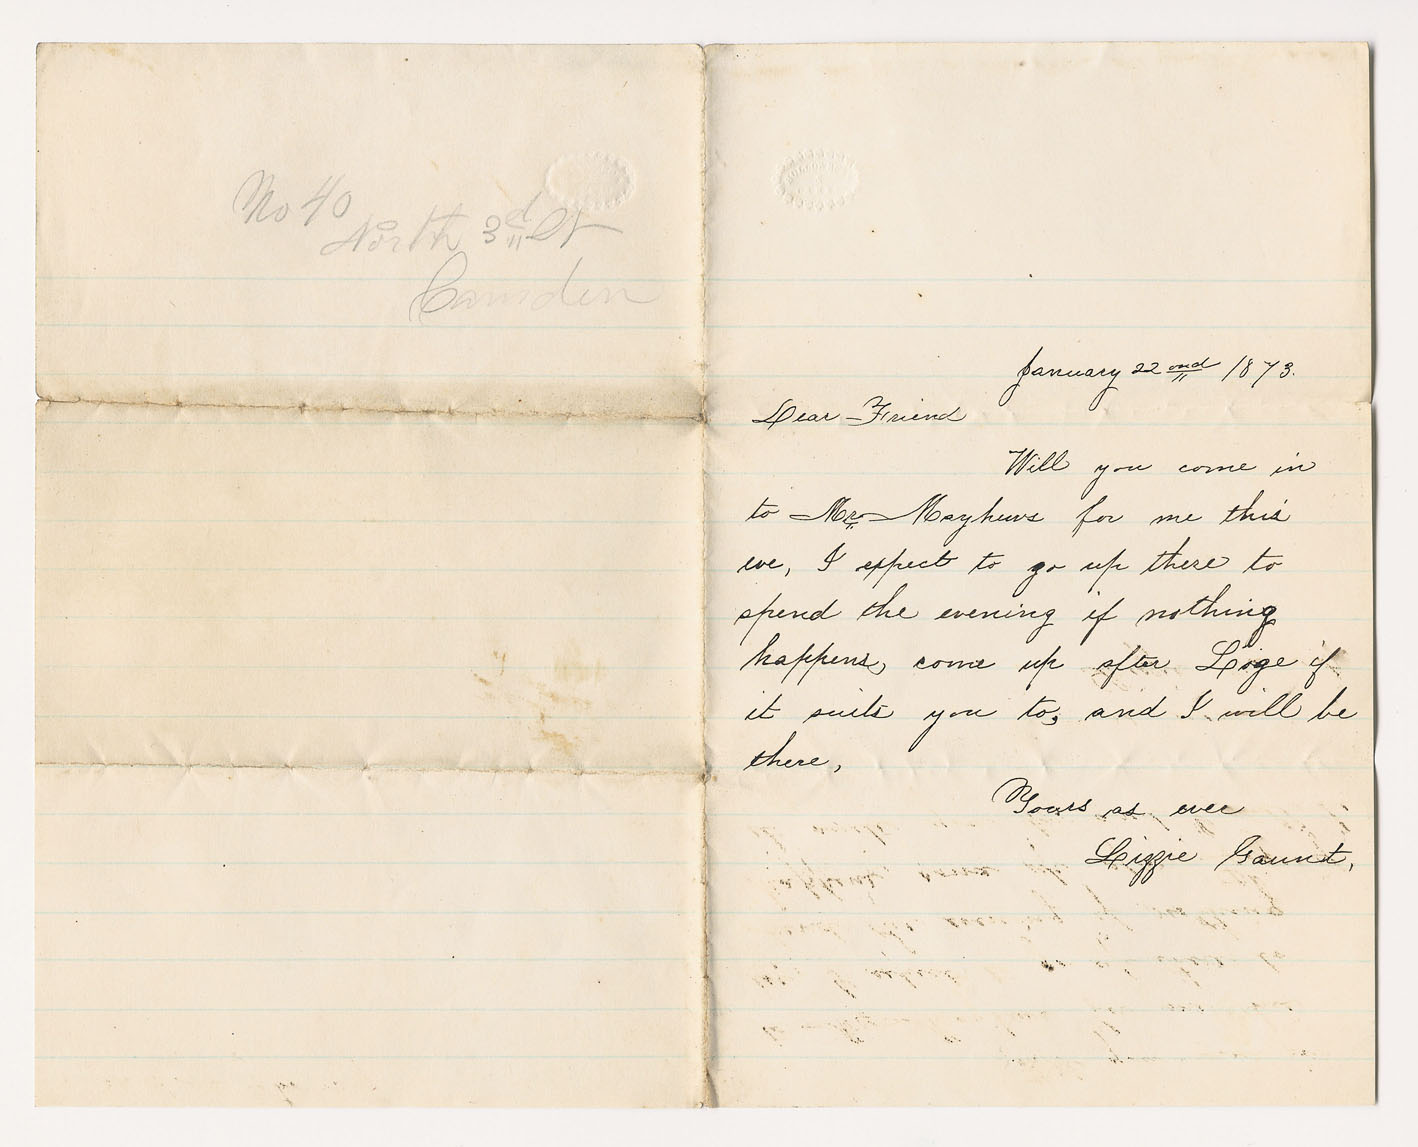 No 40
North 3d St
Camden
January 22ond 1873.
Dear Friend
Will you come in
to Mr Mayhews for me this
eve, I expect to go up there to
spend the evening if nothing
happens, come up after Loge if
it suits you to, and I will be
there,
Yours as ever
Lizzie Gaunt,